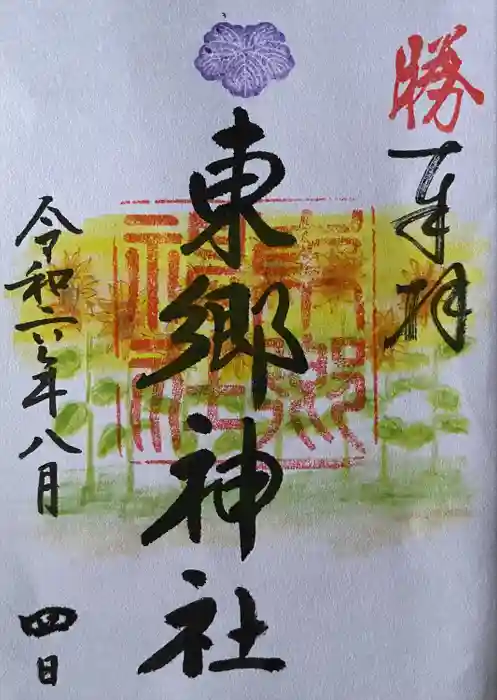 勝
奉拝
東郷神社
東郷神社
令和六年八月
四日